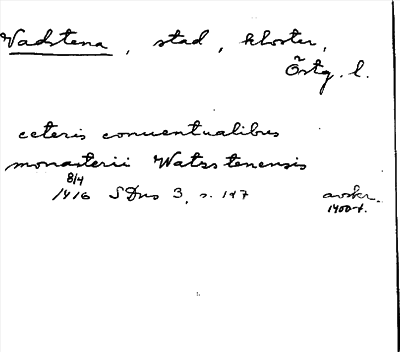 Vadstena, stad, kloster,
Östg. l.
ceteris conuentualibus
monasterii Watzstenensis
8/4
1416 SDns 3, s. 147 avskr.
1400-t.